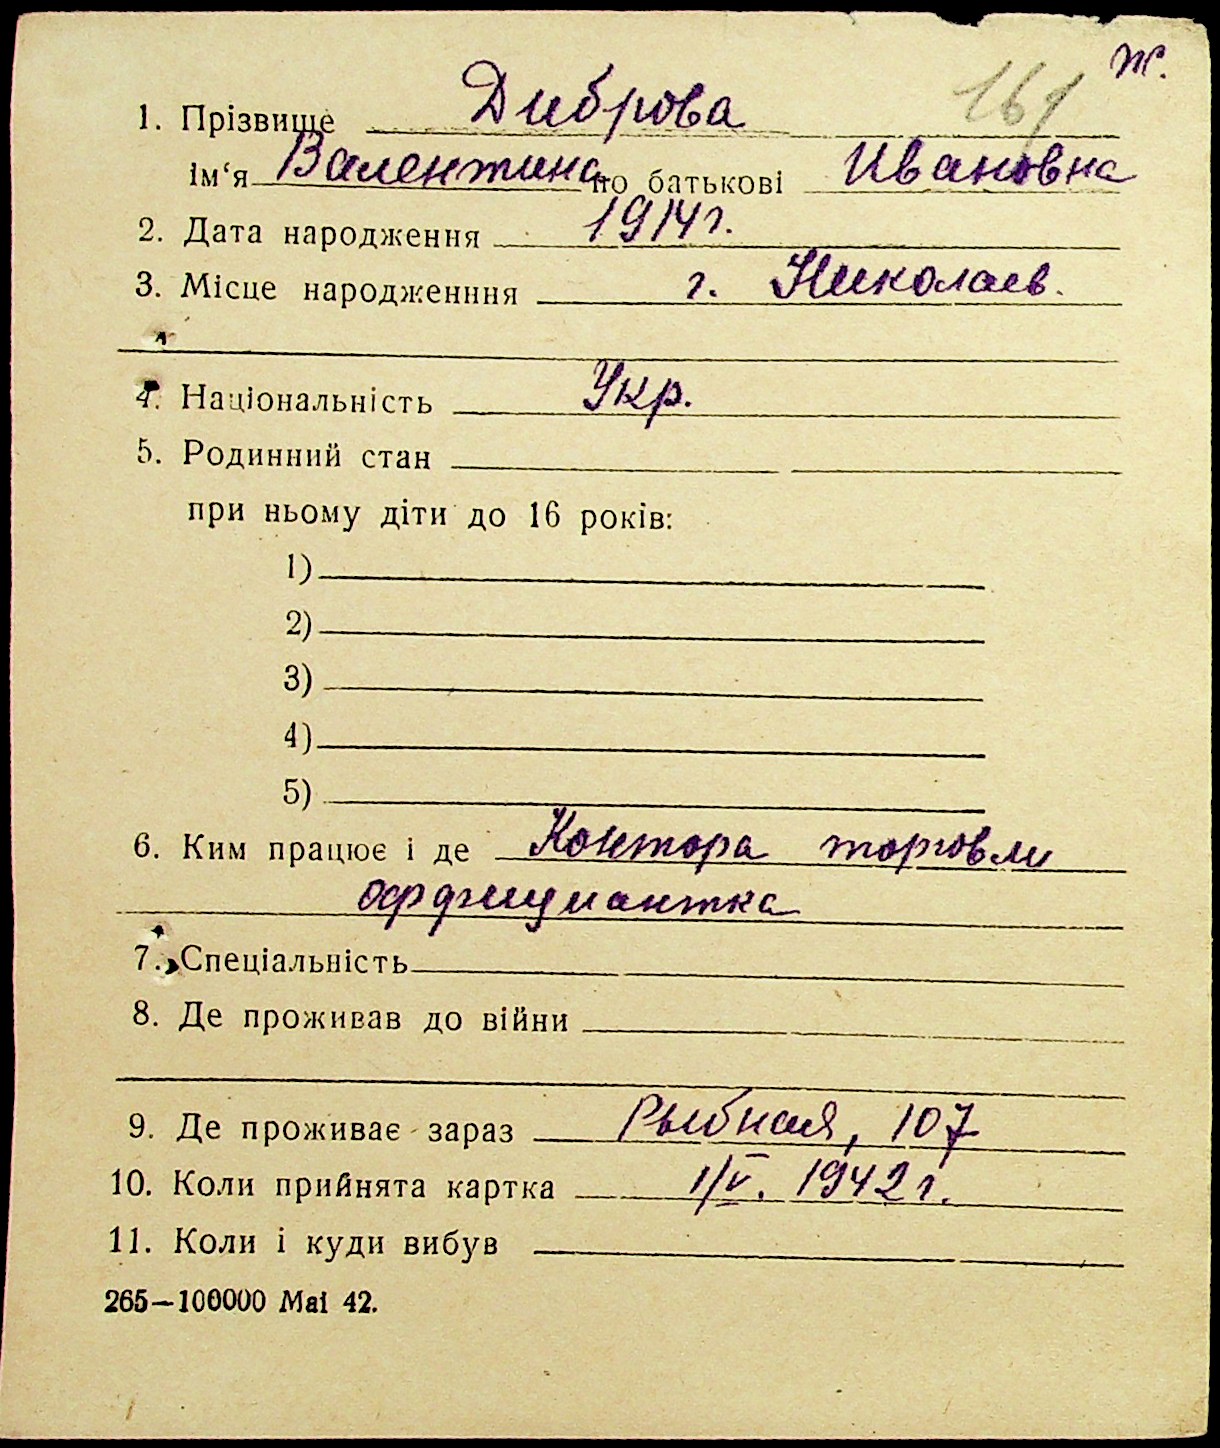 ж.
161
1. Прізвище Диброва
ім‘я Валентина по батькові Ивановна
2. Дата народження 1914 г.
3. Місце народженння г. Николаев.
4. Національність Укр.
5. Родинний стан
при ньому діти до 16 років:
1)
2)
3)
4)
5)
6. Ким працює і де Контора торговли
оффициантка
7. Спеціальність
8. Де проживав до війни
9. Де проживає зараз Рыбная, 107
10. Коли прийнята картка 1/V. 1942 г.
11. Коли і куди вибув
265—100000 Mai 42.